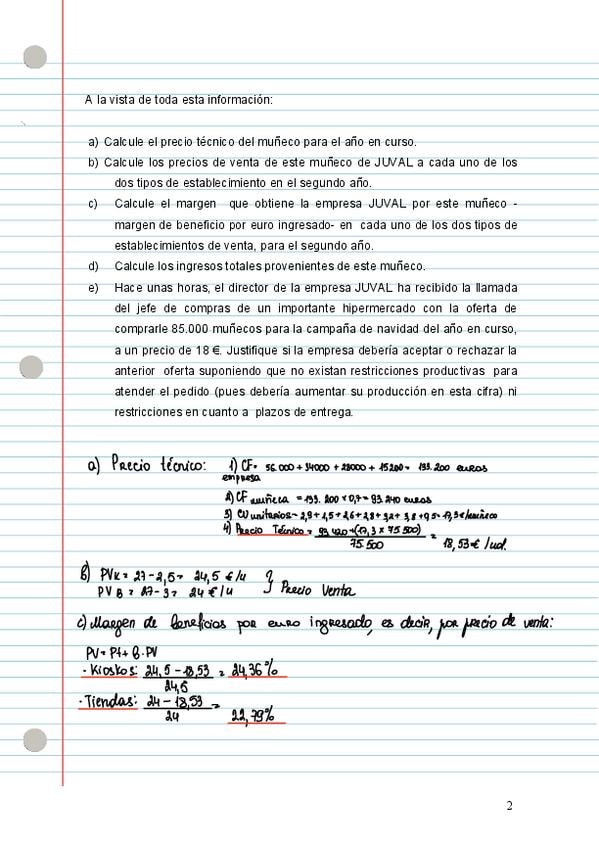 A la vista de toda esta información:
a) Calcule el precio técnico del muñeco para el año en curso.
b) Calcule los precios de venta de este muñeco de JUVAL a cada uno de los
dos tipos de establecimiento en el segundo año.
c) Calcule el margen que obtiene la empresa JUVAL por este muñeco -
margen de beneficio por euro ingresado- en cada uno de los dos tipos de
establecimientos de venta, para el segundo año.
d) Calcule los ingresos totales provenientes de este muñeco.
e) Hace unas horas, el director de la empresa JUVAL ha recibido la llamada
del jefe de compras de un importante hipermercado con la oferta de
comprarle 85.000 muñecos para la campaña de navidad del año en curso,
a un precio de 18 €. Justifique si la empresa debería aceptar o rechazar la
anterior oferta suponiendo que no existan restricciones productivas para
atender el pedido (pues debería aumentar su producción en esta cifra) ni
restricciones en cuanto a plazos de entrega.
a) Precio técnico: 1) CF = 56.000 + 34000 + 28000 + 15200 = 133.200 euros
empresa
2) CF muñeca = 133.200 x 0,7 = 93.240 euros
3) CV unitarios = 2,9 + 1,5 + 2,6 + 2,8 + 3,2 + 3,8 + 0,5 = 17,3 €/muñeco
4) Precio Técnico = 93.420 + (17,3 x 75.500) = 18,53 € / ud.
75.500
b) PVK = 27 - 2,5 = 24,5 €/u } Precio Venta
PV B = 27 - 3 = 24 €/u
c) Margen de beneficios por euro ingresado, es decir, por precio de venta:
PV = Pt + B · PV
· Kioskos: 24,5 - 18,53 = 24,36%
24,5
· Tiendas: 24 - 18,53 = 22,79%
24
2